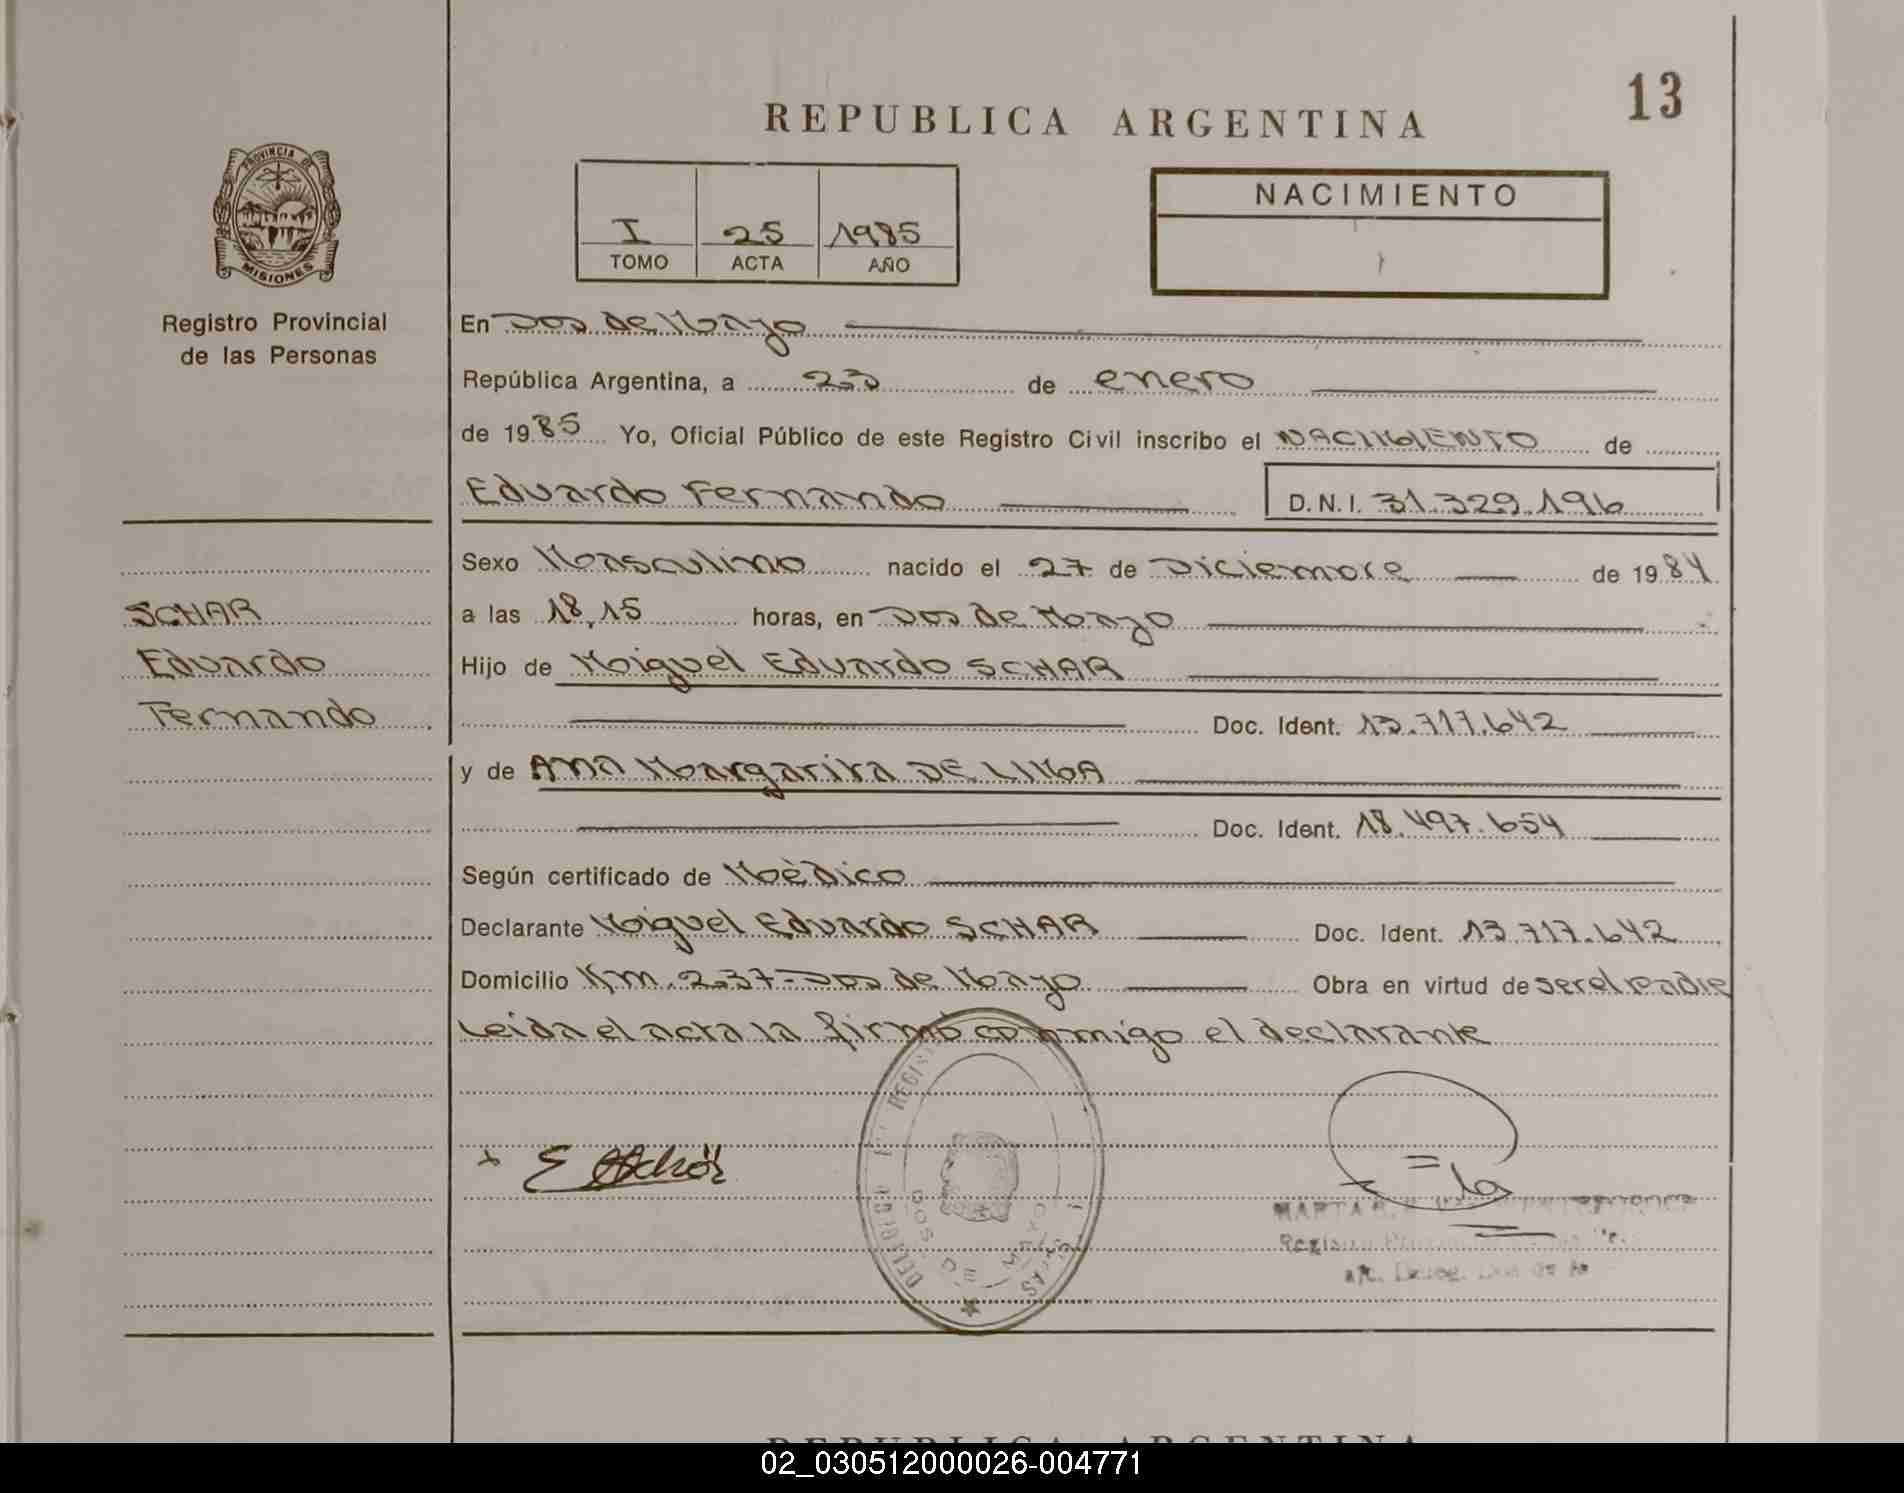 13
REPUBLICA ARGENTINA
PROVINCIA DE
MISIONES
Registro Provincial
de las Personas
I 25 1985
TOMO ACTA AÑO
NACIMIENTO
En Dos de Mayo
República Argentina, a 23 de enero
de 1985 Yo, Oficial Público de este Registro Civil inscribo el NACIMIENTO de
Eduardo Fernando D.N.I. 31.329.196
SCHAR
Eduardo
Fernando
Sexo Masculino nacido el 27 de Diciembre de 1984
a las 18,15 horas, en Dos de Mayo
Hijo de Miguel Eduardo SCHAR
Doc. Ident. 13.717.642
y de Ana Margarita DE LIMA
Doc. Ident. 18.497.654
Según certificado de Mèdico
Declarante Miguel Eduardo SCHAR Doc. Ident. 13.717.642
Domicilio Km. 237-Dos de Mayo Obra en virtud de ser el padre
Leida el acta la firmó conmigo el declarante
DOS DE MAYO
MARTA
02_030512000026-004771